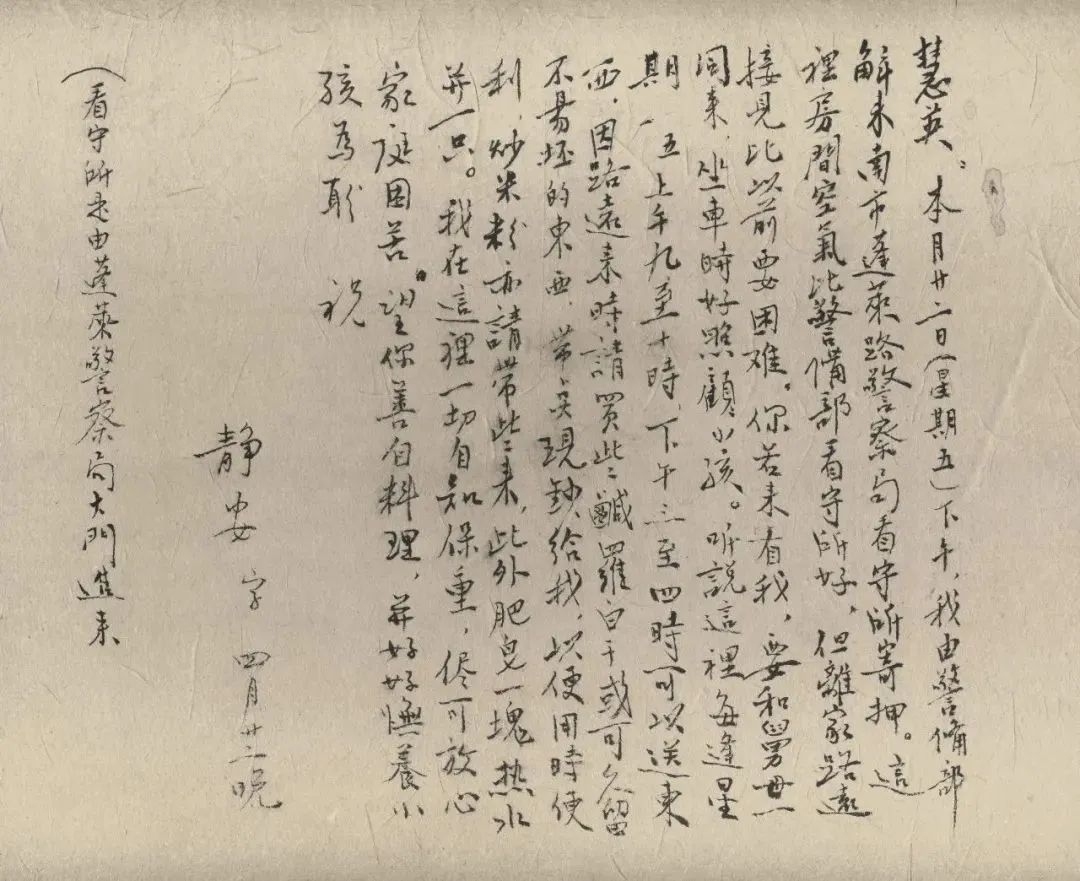 慧英：本月廿二日（星期五）下午，我由警備部
解来南市蓬萊路警察局看守所寄押。這
裡房間空氣比警備部看守所好，但離家路遠
接見比以前要困难。你若来看我，要和舅母一
同来，坐車時好照顧小孩。听說這裡每逢星
期一、五上午九至十時，下午三至四時可以送東
西，因路遠来時請買些鹹羅白干或可久留
不易坯的東西，带点現鈔給我，以便用時便
利，炒米粉亦請带些来，此外肥皂一塊热水
并一只。我在這裡一切自知保重，侭可放心
家庭困苦，望你善自料理，并好好撫養小
孩為盼　祝
静安　字　四月廿二晚
（看守所是由蓬萊警察局大門進来